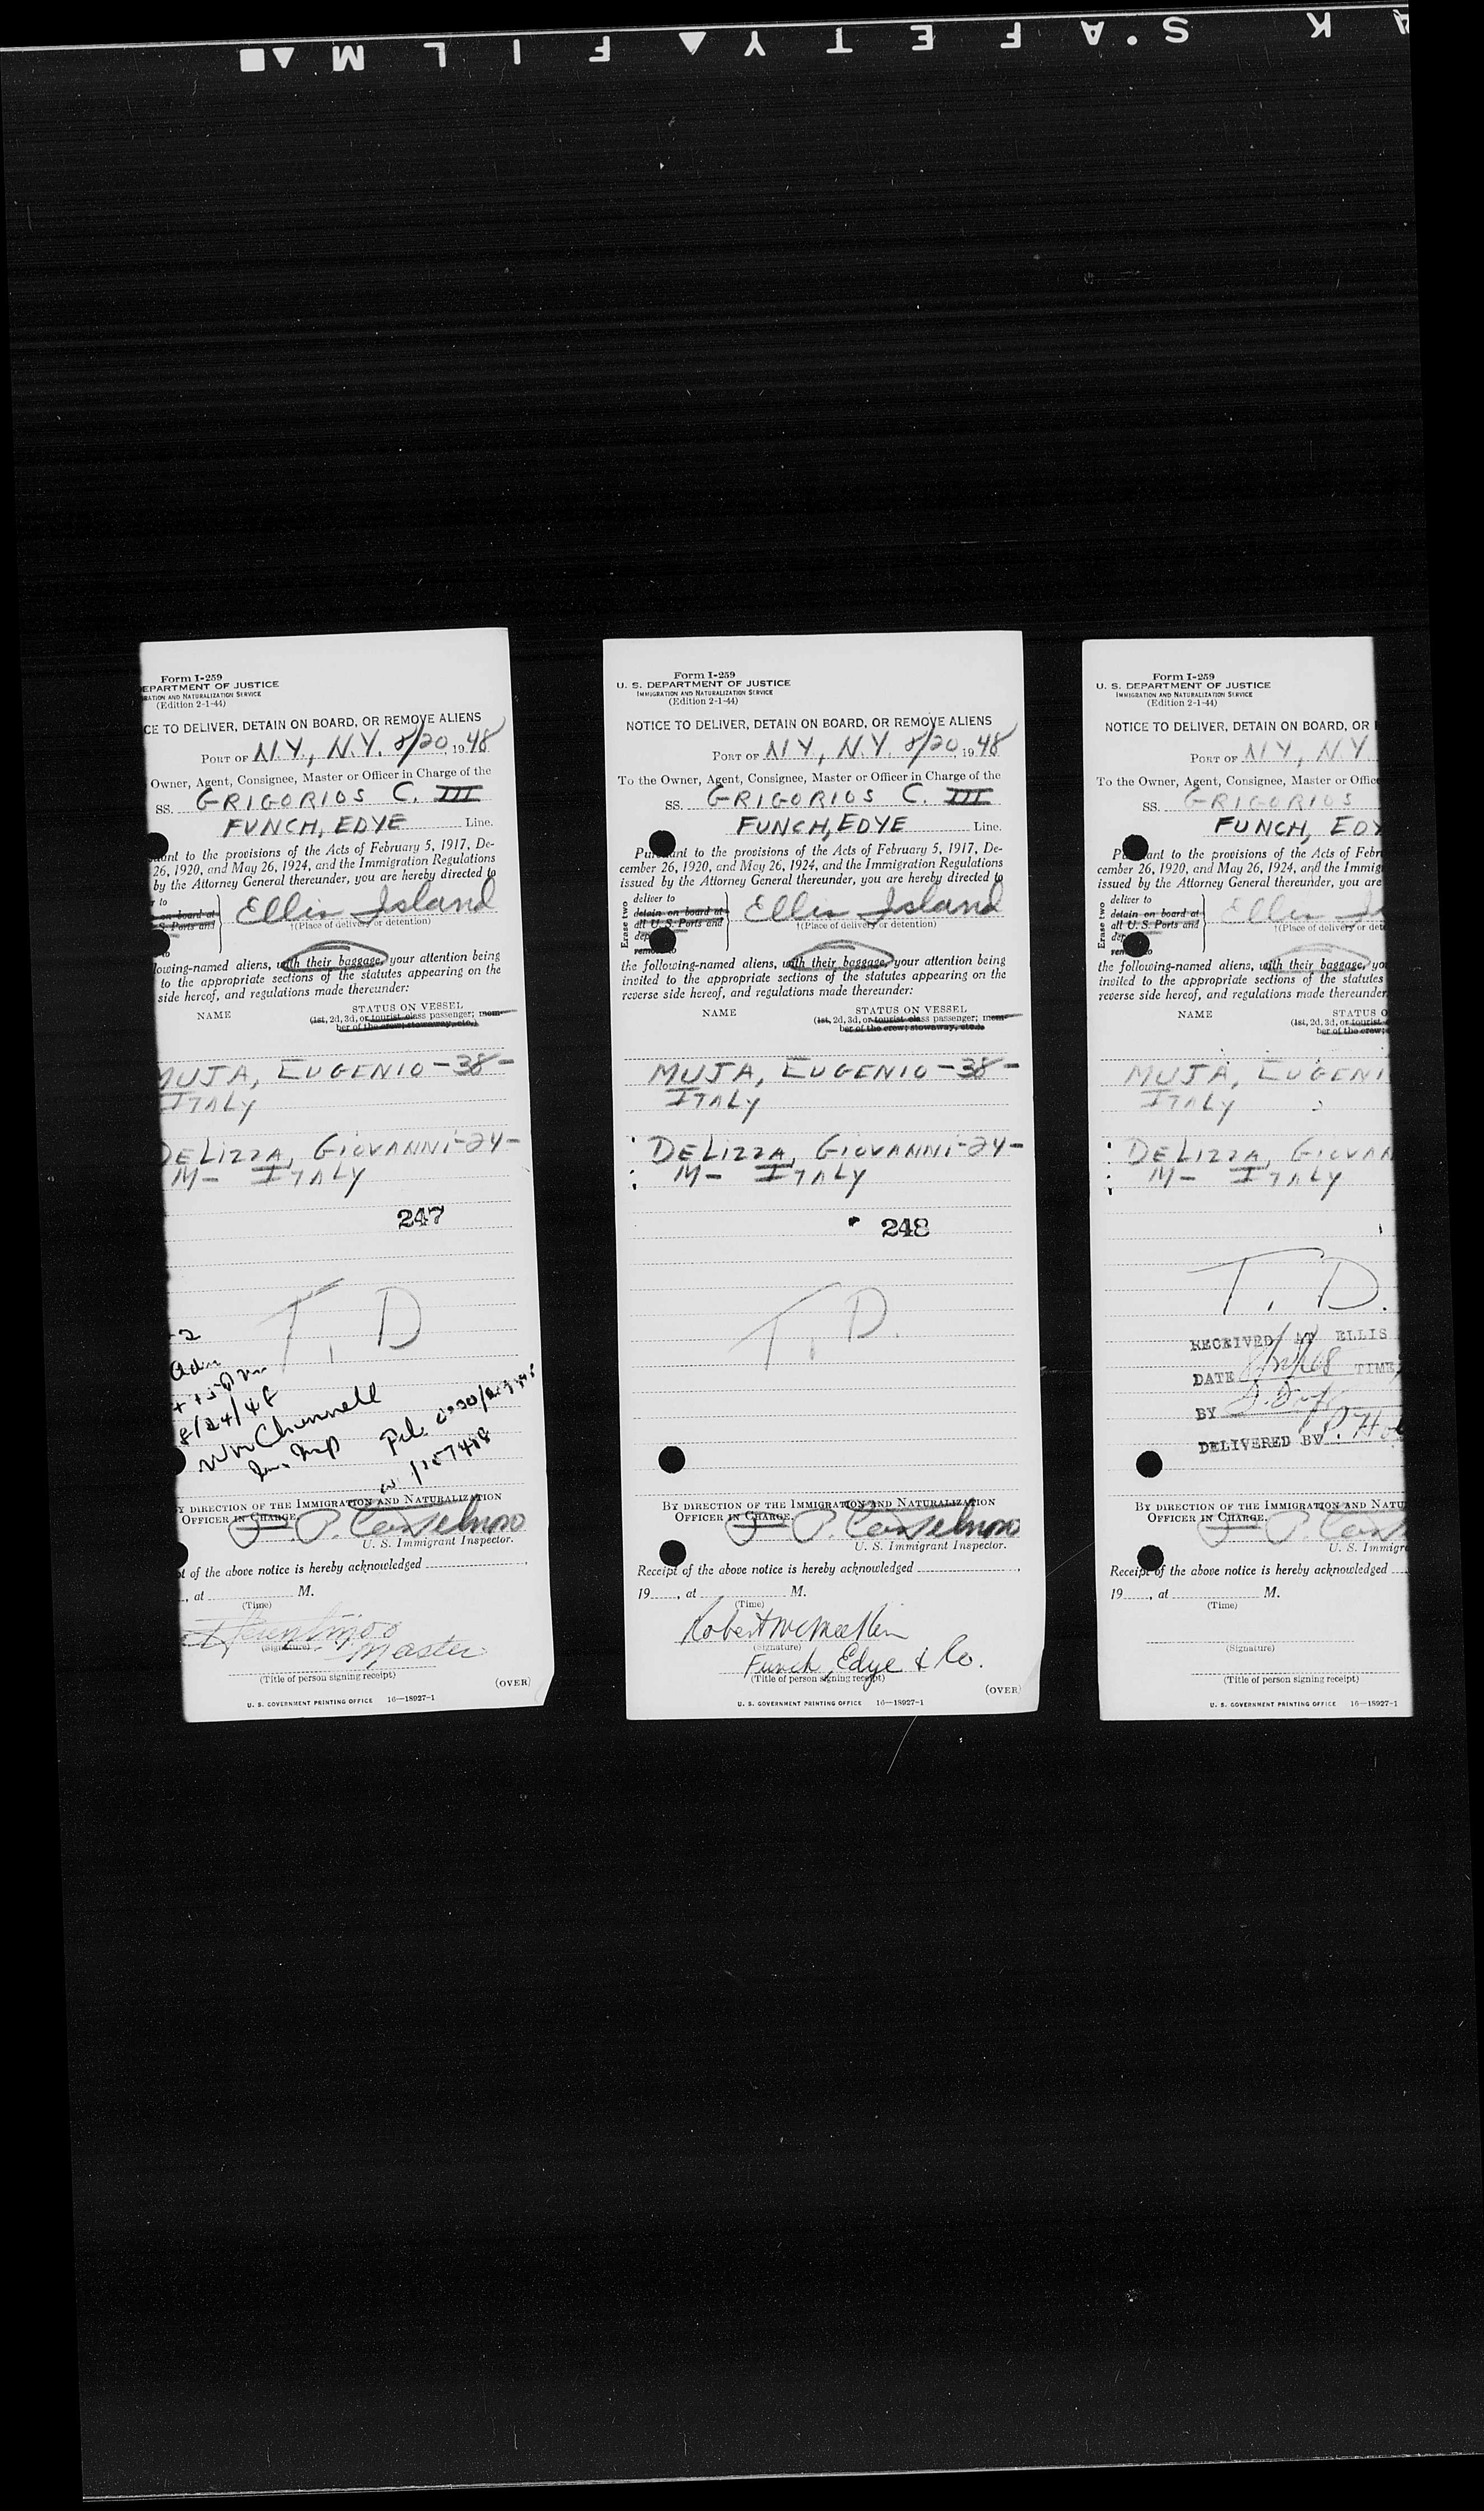 K S'AFETY▲FILM▲■
Form I-259
EPARTMENT OF JUSTICE
RATION AND NATURALIZATION SERVICE
(Edition 2-1-44)
CE TO DELIVER, DETAIN ON BOARD, OR REMOVE ALIENS
PORT OF N.Y., N.Y. 8/20, 1948
Owner, Agent, Consignee, Master or Officer in Charge of the
SS. GRIGORIOS C. III
FUNCH, EDYE Line.
uant to the provisions of the Acts of February 5, 1917, De-
26, 1920, and May 26, 1924, and the Immigration Regulations
by the Attorney General thereunder, you are hereby directed to
r to
on board at
S. Ports and
Ellis Island
†(Place of delivery or detention)
lowing-named aliens, with their baggage, your attention being
to the appropriate sections of the statutes appearing on the
side hereof, and regulations made thereunder:
NAME STATUS ON VESSEL
(1st, 2d, 3d, or tourist class passenger; mem-
ber of the crew; stowaway, etc.)
MUJA, EUGENIO-38-
ITALY
DELIZZA, GIOVANNI-24-
M- ITALY
247
T. D
-2
Adm
8/24/48
Wm Chennell
Imm. Insp
BY DIRECTION OF THE IMMIGRATION AND NATURALIZATION
OFFICER IN CHARGE.
U. S. Immigrant Inspector.
t of the above notice is hereby acknowledged
, at M.
(Time)
(Signature)
Master
(Title of person signing receipt)
(OVER)
U. S. GOVERNMENT PRINTING OFFICE 16—18927-1
Form I-259
U. S. DEPARTMENT OF JUSTICE
IMMIGRATION AND NATURALIZATION SERVICE
(Edition 2-1-44)
NOTICE TO DELIVER, DETAIN ON BOARD, OR REMOVE ALIENS
PORT OF N Y, N.Y. 8/20, 1948
To the Owner, Agent, Consignee, Master or Officer in Charge of the
SS. GRIGORIOS C. III
FUNCH, EDYE Line.
Pursuant to the provisions of the Acts of February 5, 1917, De-
cember 26, 1920, and May 26, 1924, and the Immigration Regulations
issued by the Attorney General thereunder, you are hereby directed to
Erase two
deliver to
detain on board at
all U. S. Ports and
dep
remove to
Ellis Island
†(Place of delivery or detention)
the following-named aliens, with their baggage, your attention being
invited to the appropriate sections of the statutes appearing on the
reverse side hereof, and regulations made thereunder:
NAME STATUS ON VESSEL
(1st, 2d, 3d, or tourist class passenger; mem-
ber of the crew; stowaway, etc.)
MUJA, EUGENIO-38-
ITALY
DELIZZA, GIOVANNI-24-
M- ITALY
248
T. D.
BY DIRECTION OF THE IMMIGRATION AND NATURALIZATION
OFFICER IN CHARGE.
U. S. Immigrant Inspector.
Receipt of the above notice is hereby acknowledged
19, at M.
(Time)
Robert
(Signature)
Funch, Edye & Co.
(Title of person signing receipt)
(OVER)
U. S. GOVERNMENT PRINTING OFFICE 16—18927-1
Form I-259
U. S. DEPARTMENT OF JUSTICE
IMMIGRATION AND NATURALIZATION SERVICE
(Edition 2-1-44)
NOTICE TO DELIVER, DETAIN ON BOARD, OR
PORT OF N Y, N.Y
To the Owner, Agent, Consignee, Master or Office
SS. GRIGORIOS
FUNCH, EDY
Pursuant to the provisions of the Acts of Febr
cember 26, 1920, and May 26, 1924, and the Immig
issued by the Attorney General thereunder, you are
Erase two
deliver to
detain on board at
all U. S. Ports and
dep
remove to
Ellis Is
†(Place of delivery or dete
the following-named aliens, with their baggage, yo
invited to the appropriate sections of the statutes
reverse side hereof, and regulations made thereunder
NAME STATUS O
(1st, 2d, 3d, or tourist
ber of the crew;
MUJA, EUGENI
ITALY
DELIZZA, GIOVAN
M- ITALY
T. D.
RECEIVED AT ELLIS
DATE TIME
BY
DELIVERED BY
BY DIRECTION OF THE IMMIGRATION AND NATU
OFFICER IN CHARGE.
U. S. Immigr
Receipt of the above notice is hereby acknowledged
19, at M.
(Time)
(Signature)
(Title of person signing receipt)
U. S. GOVERNMENT PRINTING OFFICE 16—18927-1